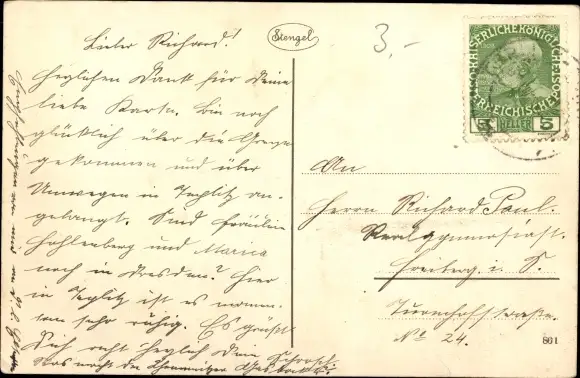 Stengel
3.-
Lieber Richard!
Herzlichen Dank für Deine
liebe Karte. Bin noch
glücklich über die Grenze
gekommen und über
Umwegen in Teplitz an-
gelangt. Sind Fräulein
Hohlenberg und Maria
noch in Dresden? Hier
in Teplitz ist es momen-
tan sehr ruhig. Es grüßt
Dich recht herzlich Dein
Was macht die Chemnitzer
KAISERLICHE KÖNIGLICHE
ÖSTERREICHISCHE POST
5 HELLER 5
An
Herrn Richard Paul.
Realgymnasiast.
Freiberg i. S.
Turnhofstraße.
No 24.
861